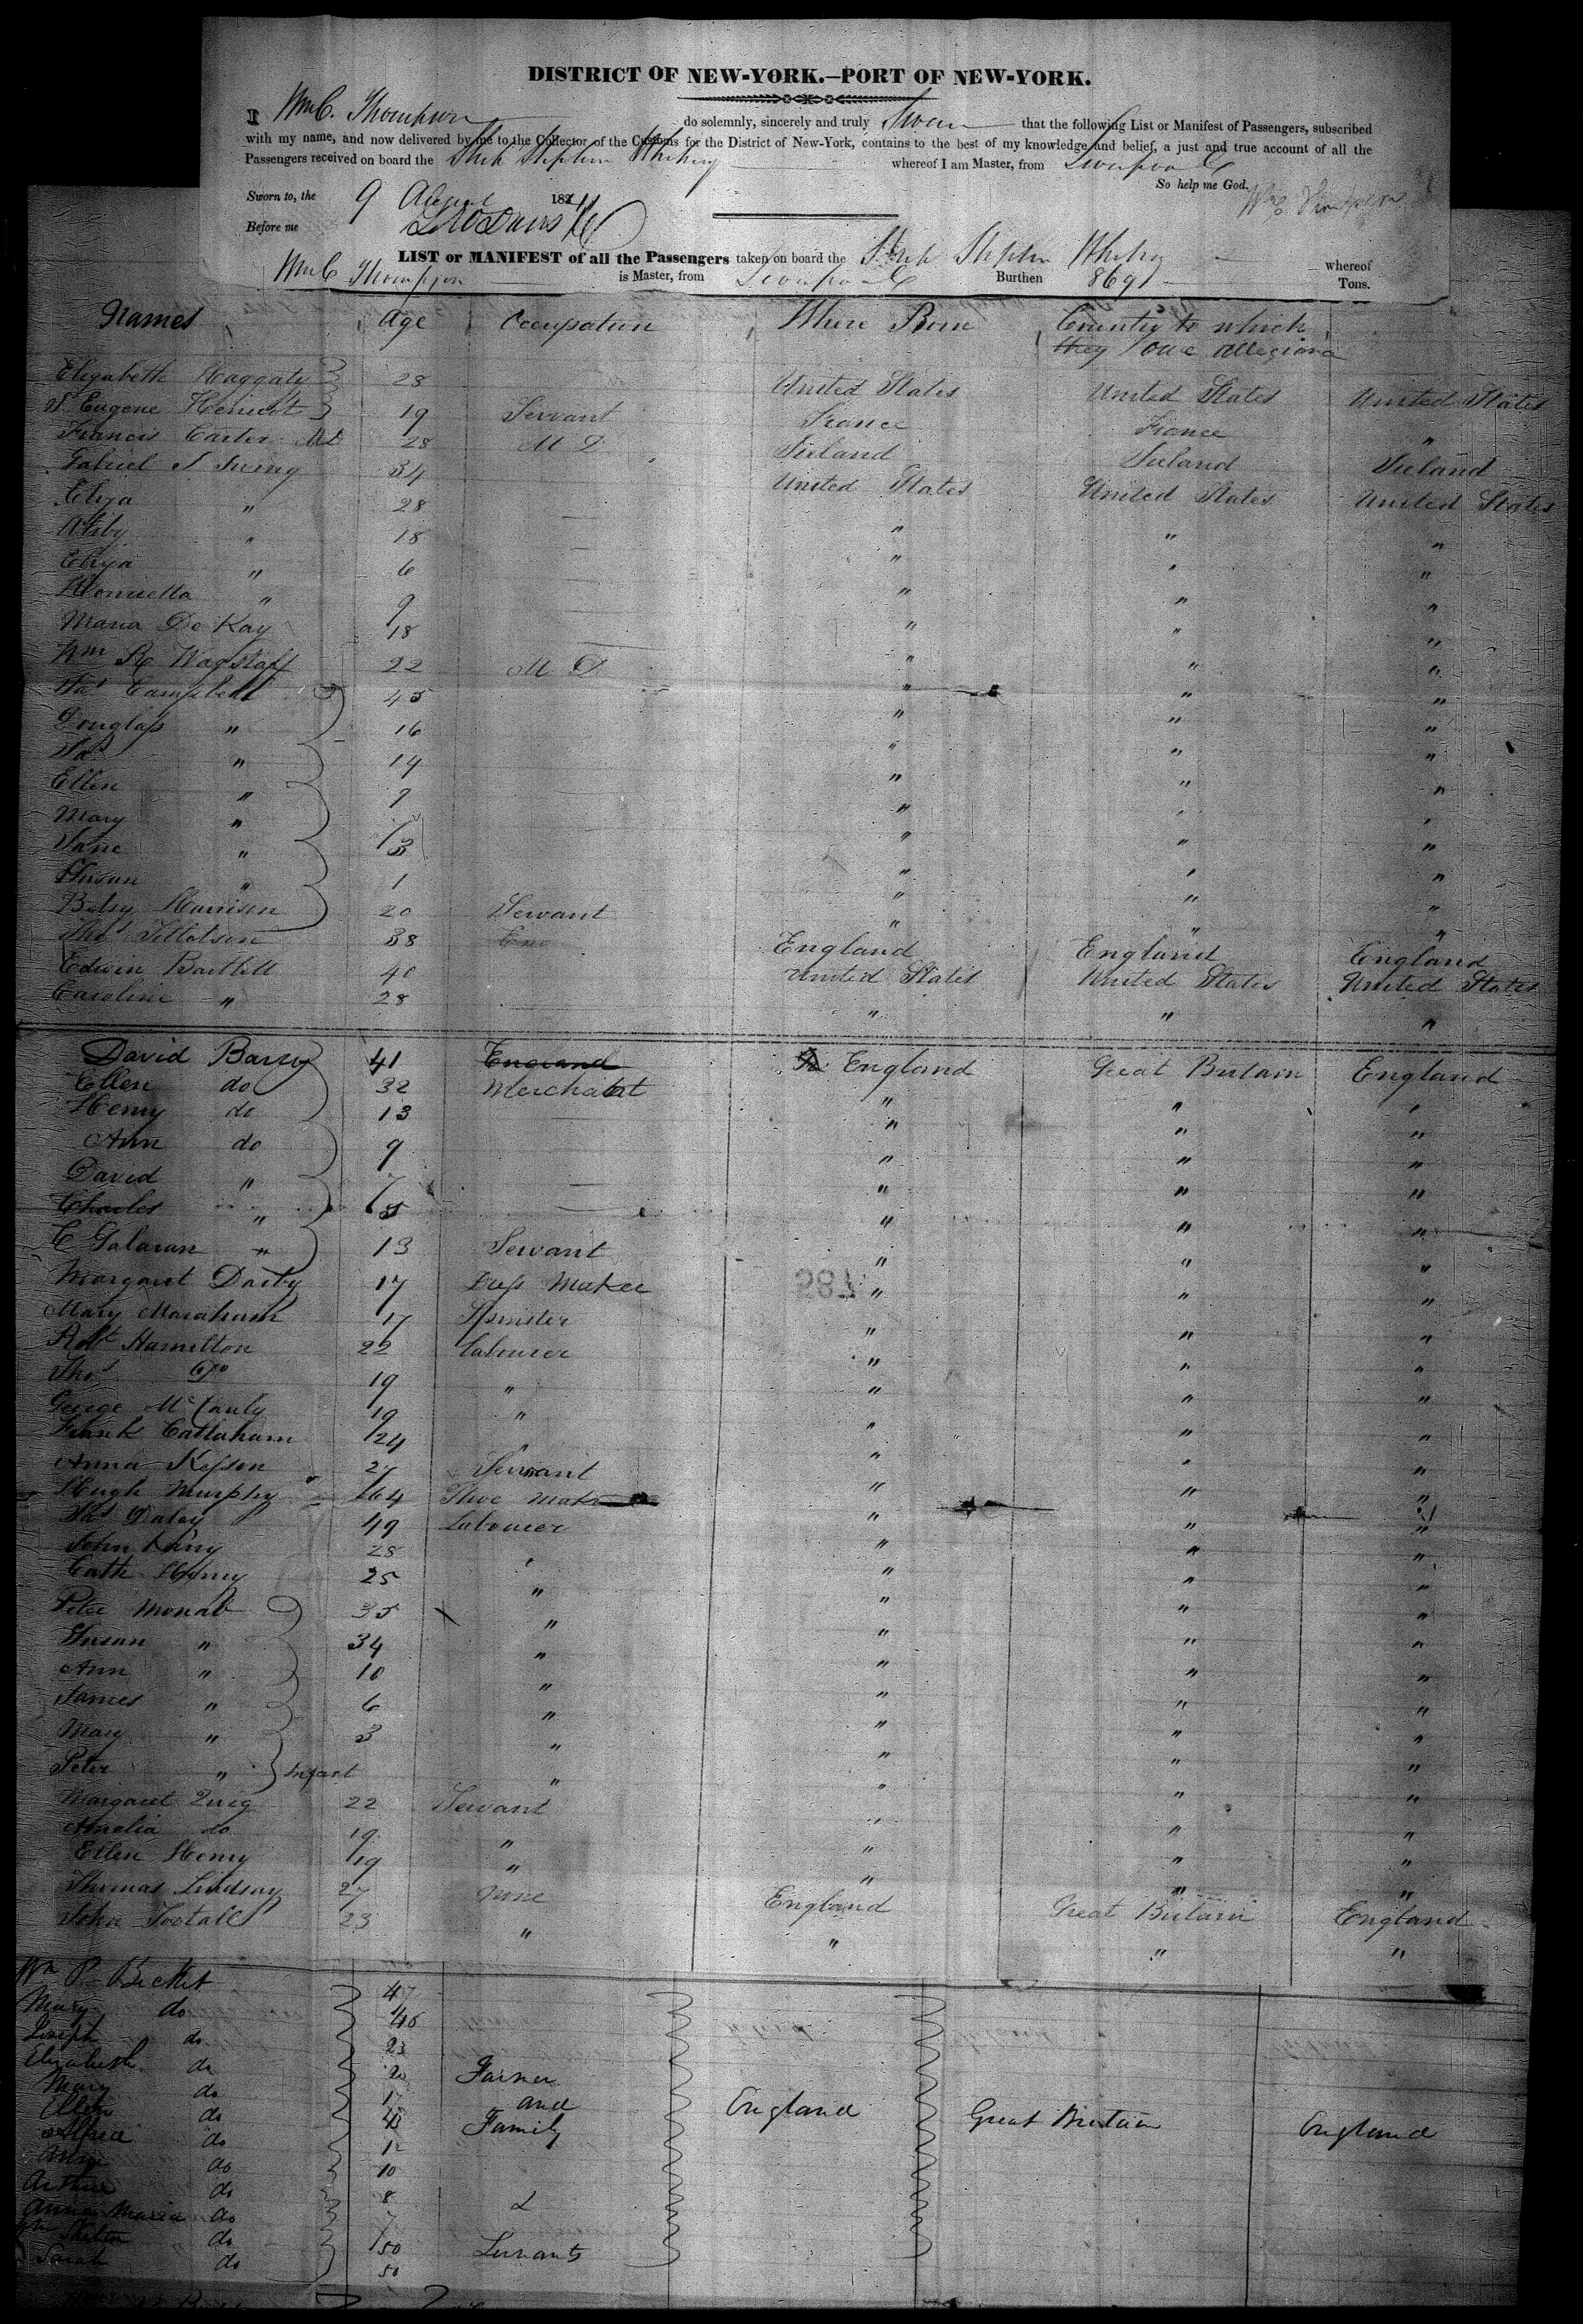 DISTRICT OF NEW-YORK.—PORT OF NEW-YORK.
I Wm C. Thompson do solemnly, sincerely and truly Swear that the following List or Manifest of Passengers, subscribed
with my name, and now delivered by me to the Collector of the Customs for the District of New-York, contains to the best of my knowledge and belief, a just and true account of all the
Passengers received on board the Ship Stephen Whitney whereof I am Master, from Liverpool
So help me God.
Sworn to, the 9 August 1841
Before me
LIST or MANIFEST of all the Passengers taken on board the Ship Stephen Whitney whereof
Wm C Thompson is Master, from Liverpool Burthen 869 Tons.
Names Age Occupation Where Born Country to which
they owe allegiance
Elizabeth Haggaty 28 United States United States United States
Eugene 19 Servant France France "
Francis Carter MD 28 M D Ireland Ireland Ireland
Gabriel 34 United States United States United States
Eliza " 28 " " "
" 18 " " "
Eliza " 6 " " "
Henrietta " 9 " " "
Maria De Kay 18 " " "
Wm R Wagstaff 22 M D " " "
Jas Campbell 45 " " "
Douglass " 16 " " "
Jas " 14 " " "
Ellen " 9 " " "
Mary " 7 " " "
Jane " 3 " " "
Susan " 1 " " "
Betsy Harrison 20 Servant " " "
Thos Tillotson 38 England England England
Edwin Bartlett 40 United States United States United States
Caroline " 28 " " "
David Barry 41 England England Great Britain England
Ellen do 32 Merchant " " "
Henry do 13 " " "
Ann do 9 " " "
David " 7 " " "
Charles " 5 " " "
C Galavan " 13 Servant " " "
Margaret Darby 17 Dress Maker " " "
Mary 17 Spinster " " "
Robt Hamilton 22 Labourer " " "
Thos Do 19 " " " "
George McCauly 19 " " " "
Frank Callaham 24 " " "
Anna 27 Servant " " "
Hugh Murphy 64 Shoe Maker " " "
Jas Daley 49 Labourer " " "
John King 28 " " " "
Cath Henry 25 " " " "
Peter Monab 35 " " " "
Susan " 34 " " " "
Ann " 10 " " " "
James " 6 " " " "
Mary " 3 " " " "
Peter " Infant " " " "
Margaret Quig 22 Servant " " "
Amelia do 19 " " " "
Ellen Henry 19 " " " "
Thomas Lindsay 27 England Great Britain England
John Tootall 23 " " " "
Wm P Becket 47
Mary do 46
Joseph do 23
Elizabeth do 20 Farmer
Mary do 17 and
Ellen do 15 Family England Great Britain England
do 12
do 10
Arthur do 8 &
Anna Maria do 7
do 50 Servants
Sarah do 50